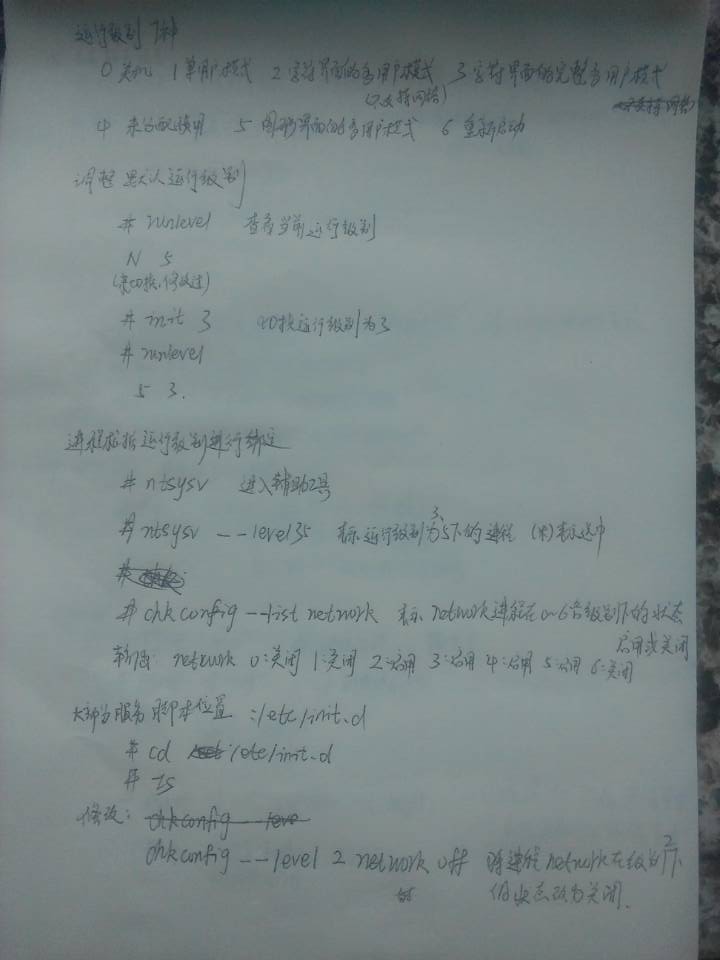 运行级别 7种
0 关机 1 单用户模式 2 字符界面的多用户模式 3 字符界面的完整多用户模式
(不支持网络) 支持网络)
4 未分配使用 5 图形界面的多用户模式 6 重新启动
调整默认运行级别
# runlevel 查看当前运行级别
N 5
(未切换,修改过)
# init 3 切换运行级别为3
# runlevel
5 3.
进程 运行级别进行绑定
# ntsysv 进入辅助工具
# ntsysv --level 35 表示运行级别为3,5下的进程 (*)表示选中
#
# chkconfig --list network 表示network进程在0~6各级别下的状态
启用或关闭
network 0:关闭 1:关闭 2:启用 3:启用 4:启用 5:启用 6:关闭
大部分服务脚本位置 :/etc/init.d
# cd /etc/init.d
# ls
修改: chkconfig --leve
chkconfig --level 2 network off 将进程network在级别2下
的状态改为关闭.